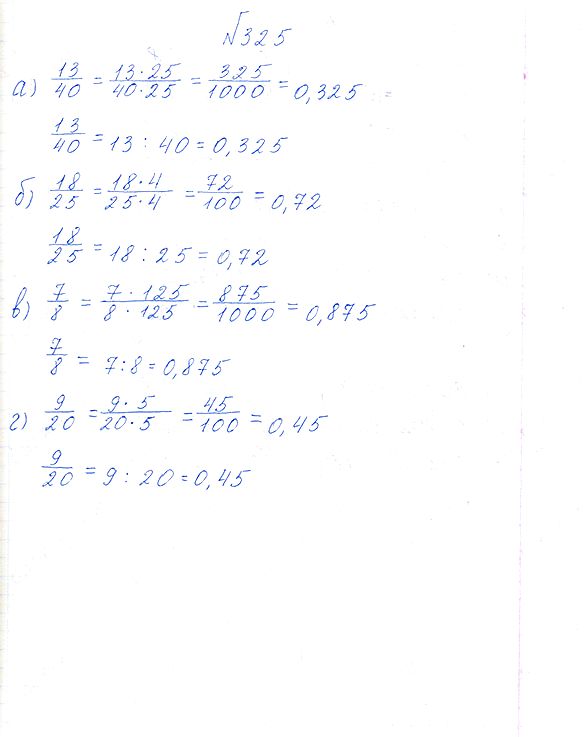 №325
а) 13/40 = 13·25/40·25 = 325/1000 = 0,325
13/40 = 13 : 40 = 0,325
б) 18/25 = 18·4/25·4 = 72/100 = 0,72
18/25 = 18 : 25 = 0,72
в) 7/8 = 7·125/8·125 = 875/1000 = 0,875
7/8 = 7:8 = 0,875
г) 9/20 = 9·5/20·5 = 45/100 = 0,45
9/20 = 9 : 20 = 0,45